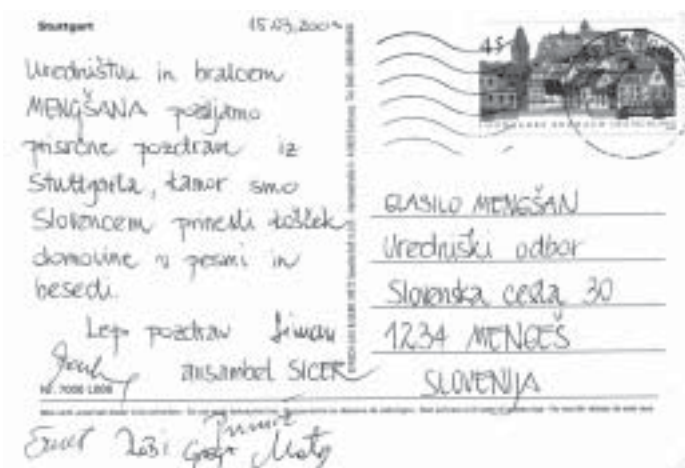 Stuttgart
15.03.200
Uredništvu in bralcem
MENGŠANA pošiljamo
prisrčne pozdrave iz
Stuttgarta, kamor smo
Slovencem prinesli košček
domovine v pesmi in
besedi.
Lep pozdrav Simon
ansambel SICER
Nr. 7000 L008
Primož
Matej
45
GLASILO MENGŠAN
Uredniški odbor
Slovenska cesta 30
1234 MENGEŠ
SLOVENIJA